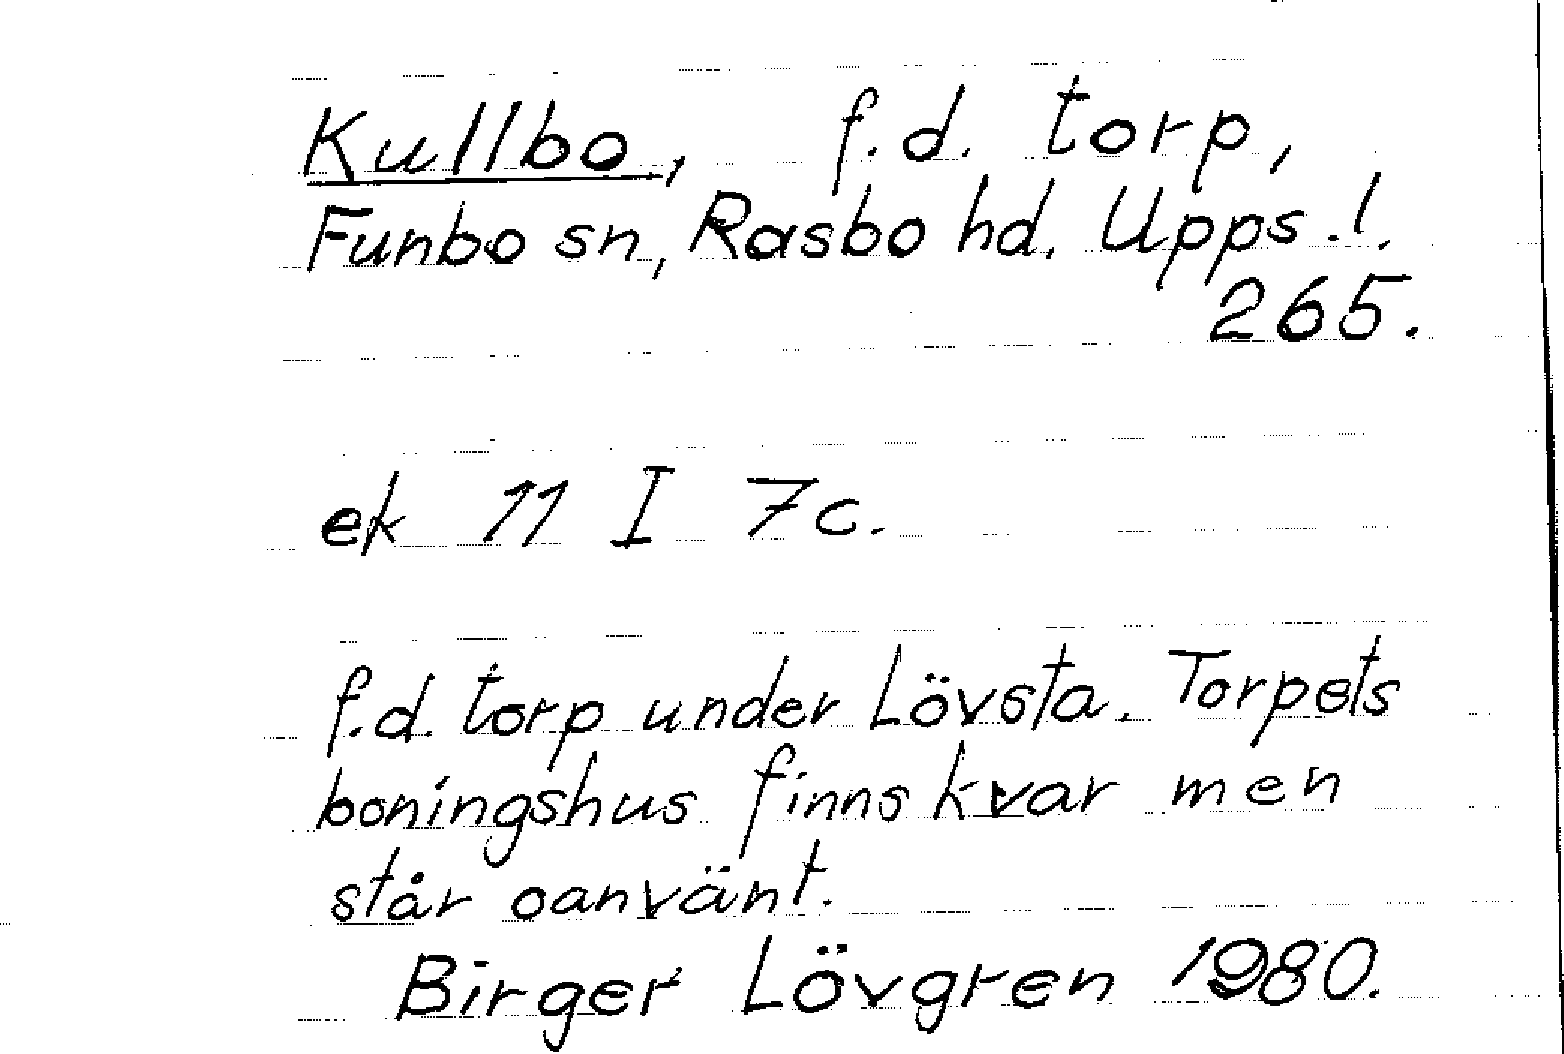 Kullbo, f.d. torp,
Funbo sn, Rasbo hd. Upps.l.
265.
ek 11 I 7c.
f.d. torp under Lövsta. Torpets
boningshus finns kvar men
står oanvänt.
Birger Lövgren 1980.